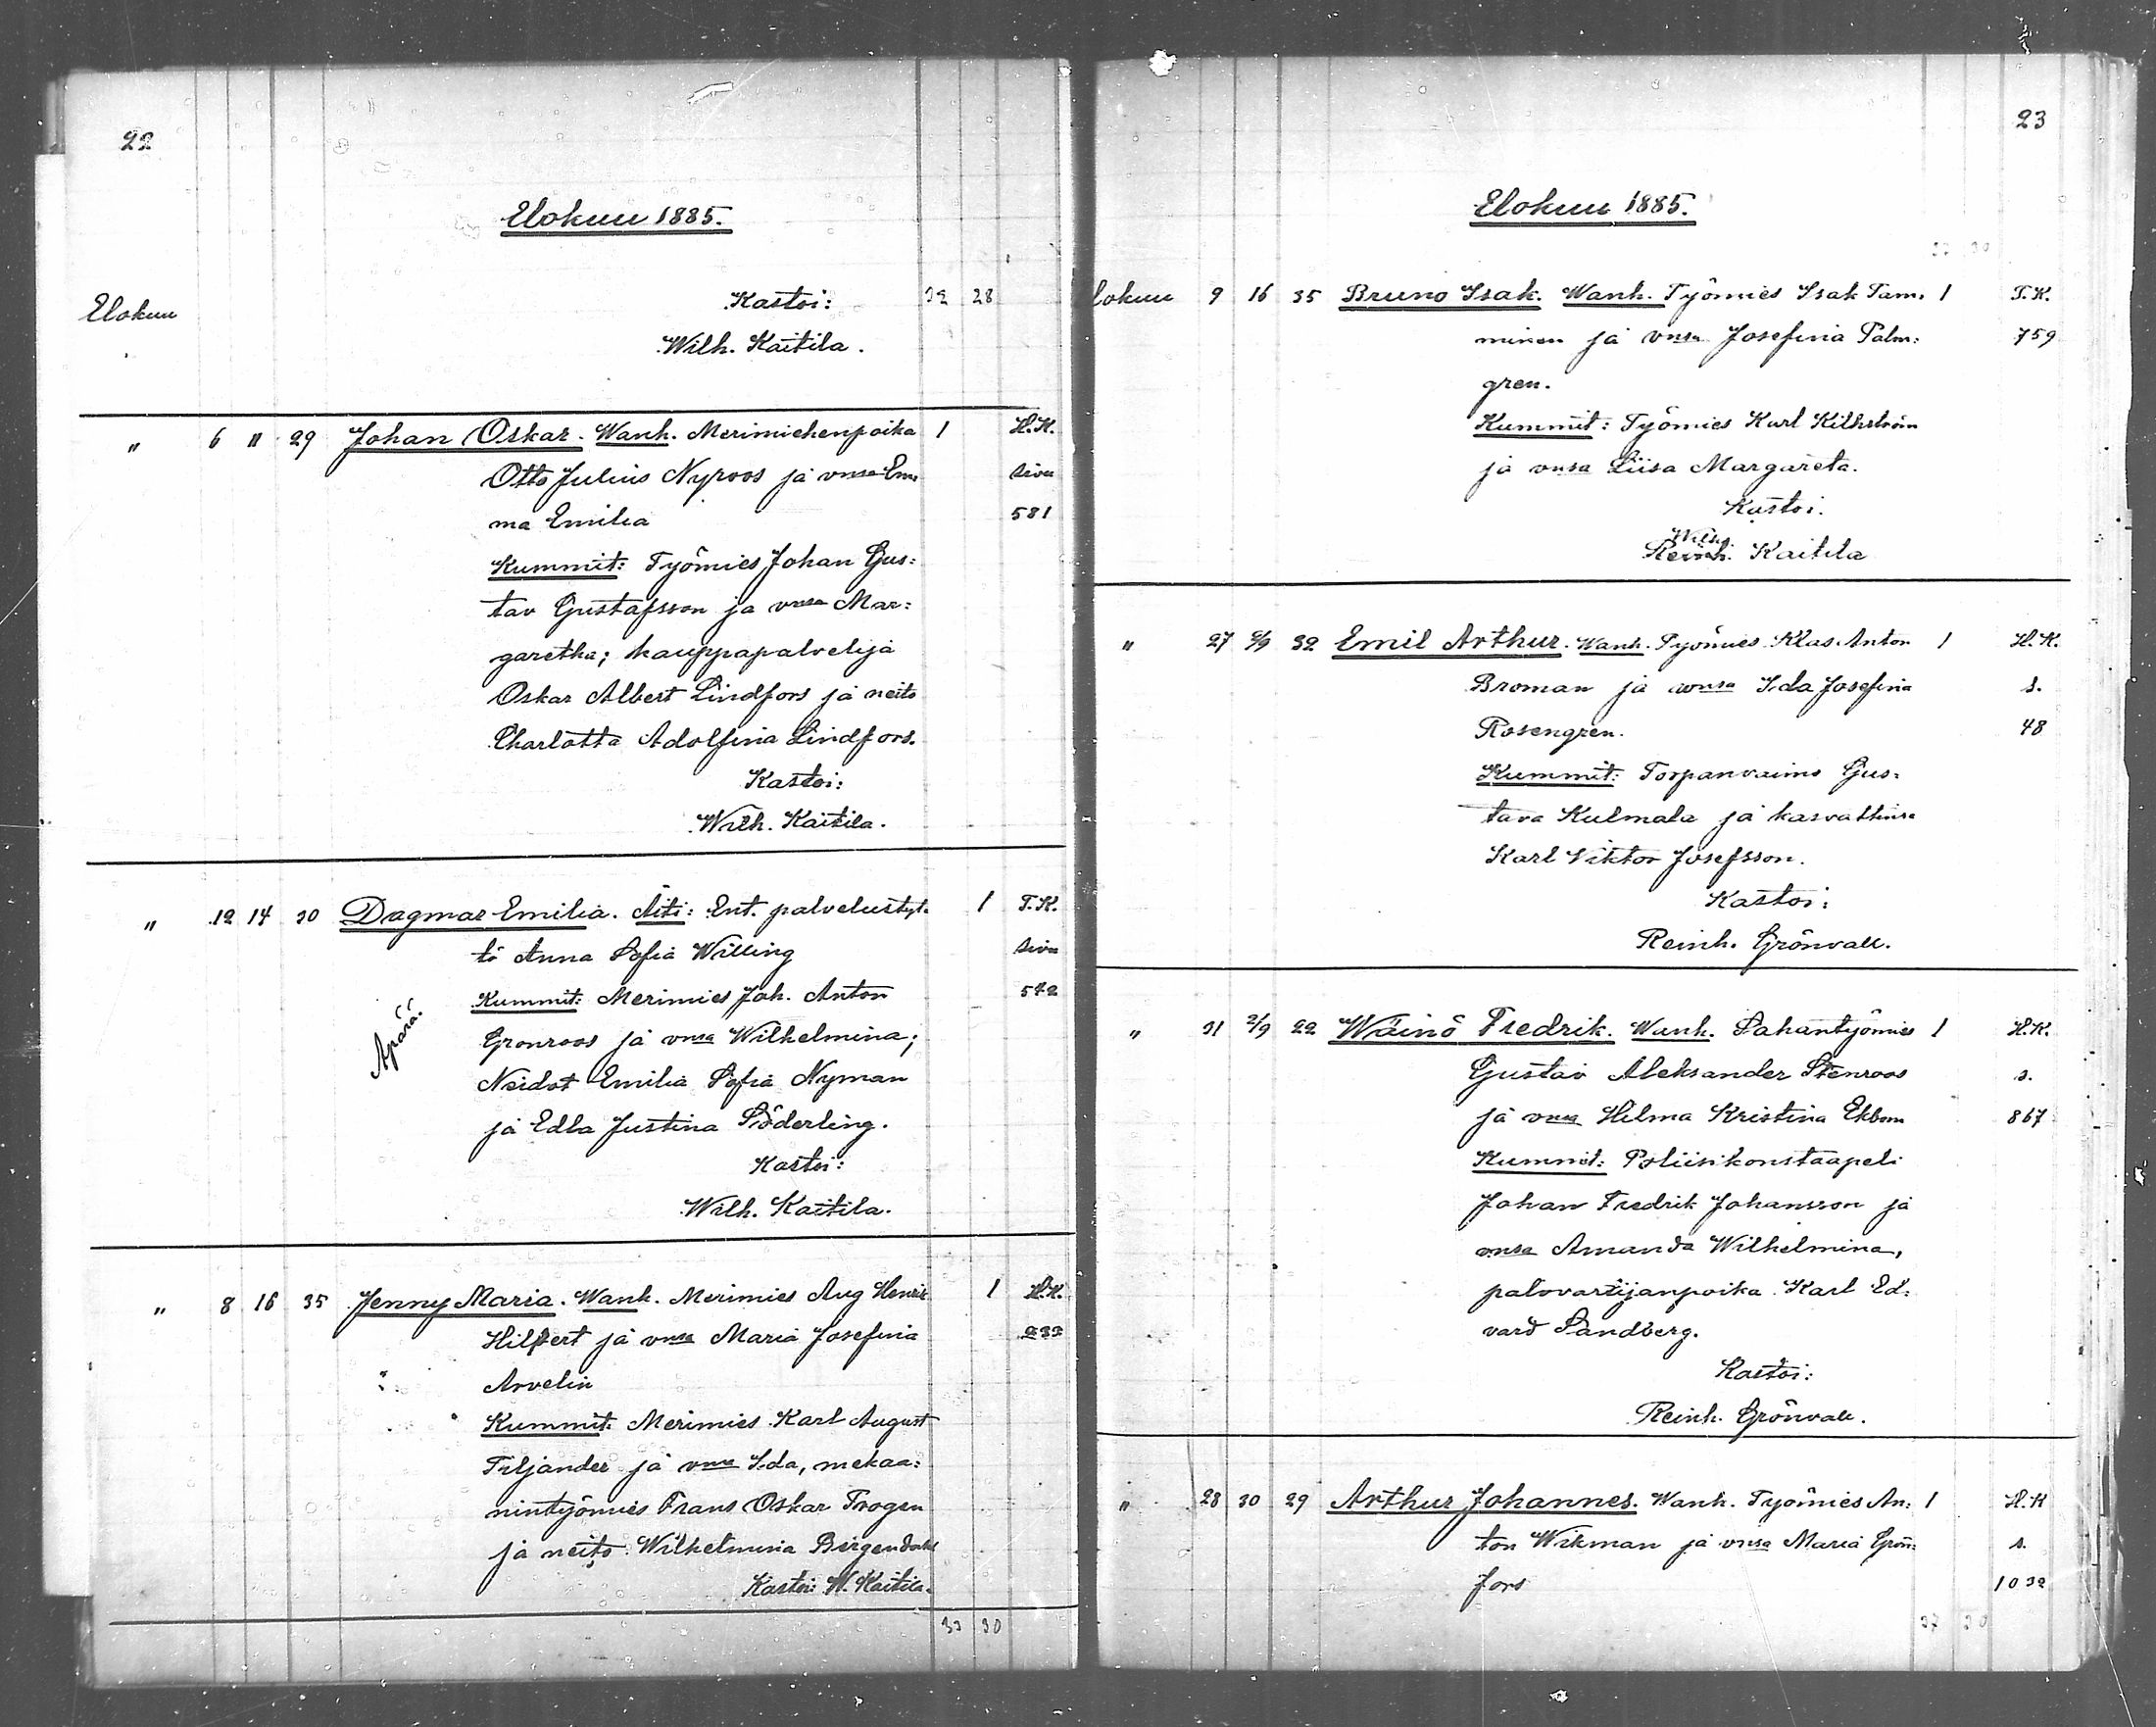 22
Elokuu 1885.
Elokuu Kastoi: 32 28
Wilh. Kaitila.
" 6 11 29 Johan Oskar. Wanh. Merimiehenpoika 1 H.K.
Otto Julius Nyroos ja vmsa Em= sivu
ma Emilia 581
Kummit: Työmies Johan Gus=
tav Gustafsson ja vmsa Mar=
garetha; kauppapalvelija
Oskar Albert Lindfors ja neito
Charlotta Adolfina Lindfors.
Kastoi:
Wilh. Kaitila.
" 12 14 30 Dagmar Emilia. Äiti: Ent. palvelustyt= 1 T.K.
tö Anna Sofia Willing sivu
Kummit: Merimies Joh. Anton 542
Äpärä.
Gronroos ja vmsa Wilhelmina;
Neidot Emilia Sofia Nyman
ja Edla Justina Söderling.
Kastoi:
Wilh. Kaitila.
" 8 16 35 Jenny Maria. Wanh. Merimies Aug Henrik 1 H.K.
Hilpert ja vmsa Maria Josefina 232
Arvelin
Kummit: Merimies Karl August
Tiljander ja vmsa Ida, mekaa=
nintyömies Frans Oskar Trogen
ja neito Wilhelmina Bergendahl
Kastoi: W. Kaitila.
33 30
23
Elokuu 1885.
33 30
lokuu 9 16 35 Bruno Isak. Wanh. Työmies Isak Tam= 1 T.K.
minen ja vmsa Josefina Palm= 759
gren.
Kummit: Työmies Karl Kilhström
ja vmsa Liisa Margareta.
Kastoi.
Wilh.
Reinh. Kaitila
" 27 2/9 32 Emil Arthur. Wanh. Työmies Klas Anton 1 H.K.
Broman ja vmsa Ida Josefina s.
Rosengren. 48
Kummit: Torpanvaimo Gus=
tava Kulmala ja kasvattinsa
Karl Viktor Josefsson.
Kastoi:
Reinh. Grönvall.
" 31 2/9 22 Wäinö Fredrik. Wanh. Sahantyömies 1 H.K.
Gustav Aleksander Stenroos s.
ja vmsa Hilma Kristina Ekbom 867
Kummit: Poliisikonstaapeli
Johan Fredrik Johansson ja
vmsa Amanda Wilhelmina,
palovartijanpoika Karl Ed=
vard Sandberg.
Kastoi:
Reinh. Grönvall.
" 28 30 29 Arthur Johannes. Wanh. Työmies An= 1 H.K
ton Wikman ja vmsa Maria Grön= s.
fors 1032
37 30